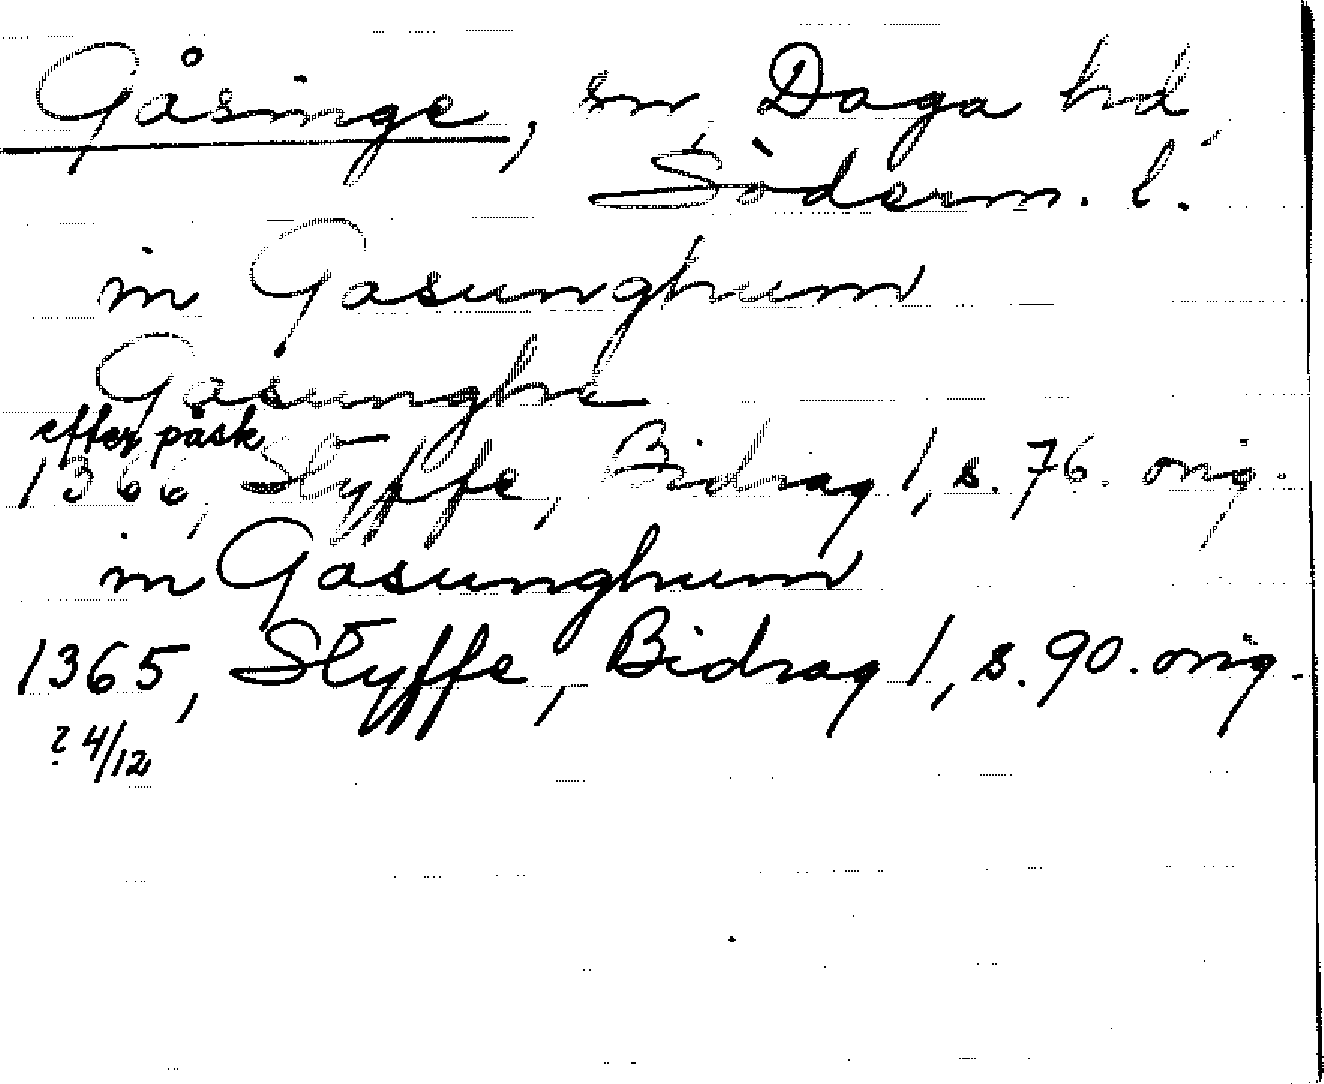 Gåsinge, sn, Daga hd,
Söderm. l.
in Gasunghum
Gasunghe
efter påsk
1366, Styffe, Bidrag 1, s. 76. orig.
in Gasunghum
1365, Styffe, Bidrag 1, s. 90. orig.
? 4/12